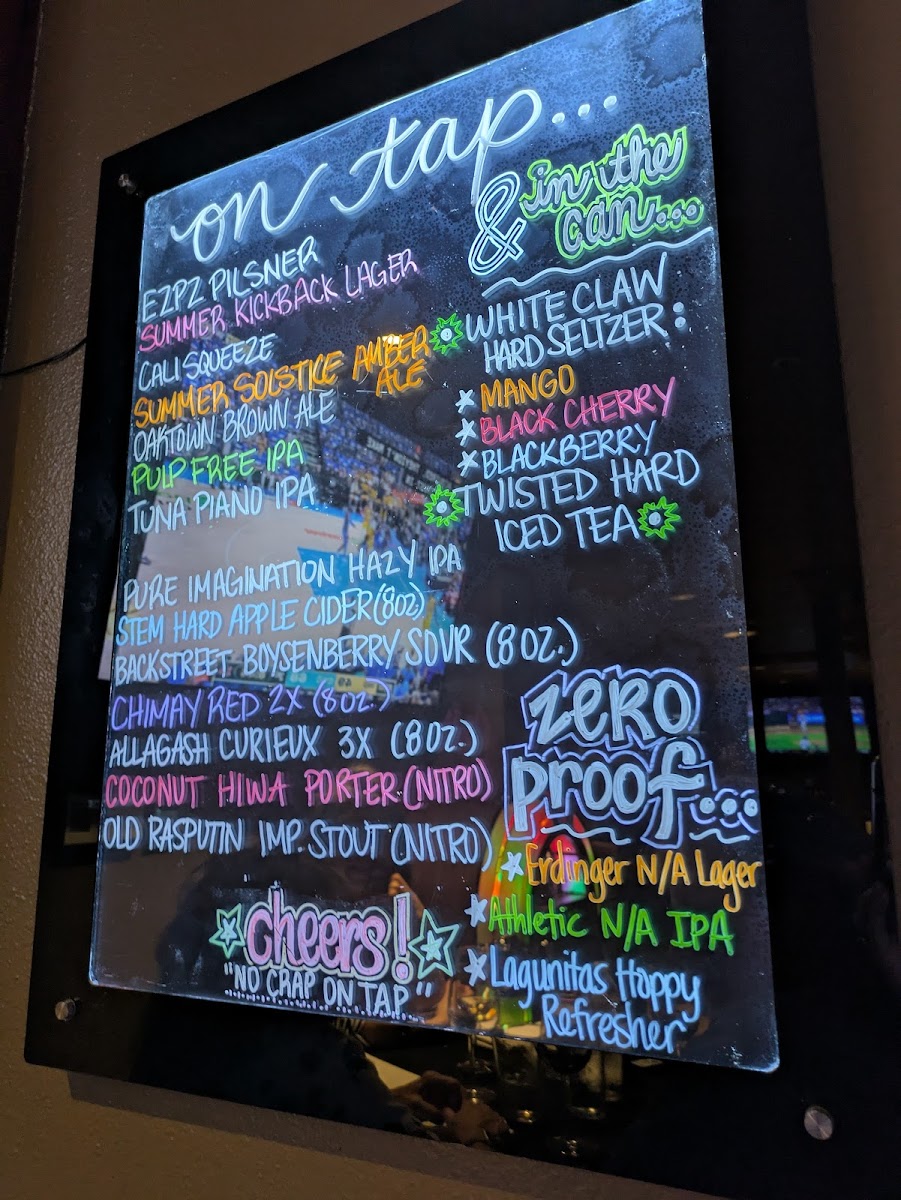 on tap...
& in the
can...
EZPZ PILSNER
SUMMER KICKBACK LAGER
CALI SQUEEZE
SUMMER SOLSTICE AMBER
ALE
OAKTOWN BROWN ALE
PULP FREE IPA
TUNA PIANO IPA
PURE IMAGINATION HAZY IPA
STEM HARD APPLE CIDER (8OZ)
BACKSTREET BOYSENBERRY SOUR (8OZ.)
CHIMAY RED 2X (8OZ.)
ALLAGASH CURIEUX 3X (8OZ.)
COCONUT HIWA PORTER (NITRO)
OLD RASPUTIN IMP. STOUT (NITRO)
cheers!
"NO CRAP ON TAP"
WHITE CLAW
HARD SELTZER:
MANGO
BLACK CHERRY
BLACKBERRY
TWISTED HARD
ICED TEA
zero
proof...
Erdinger N/A Lager
Athletic N/A IPA
Lagunitas Hoppy
Refresher